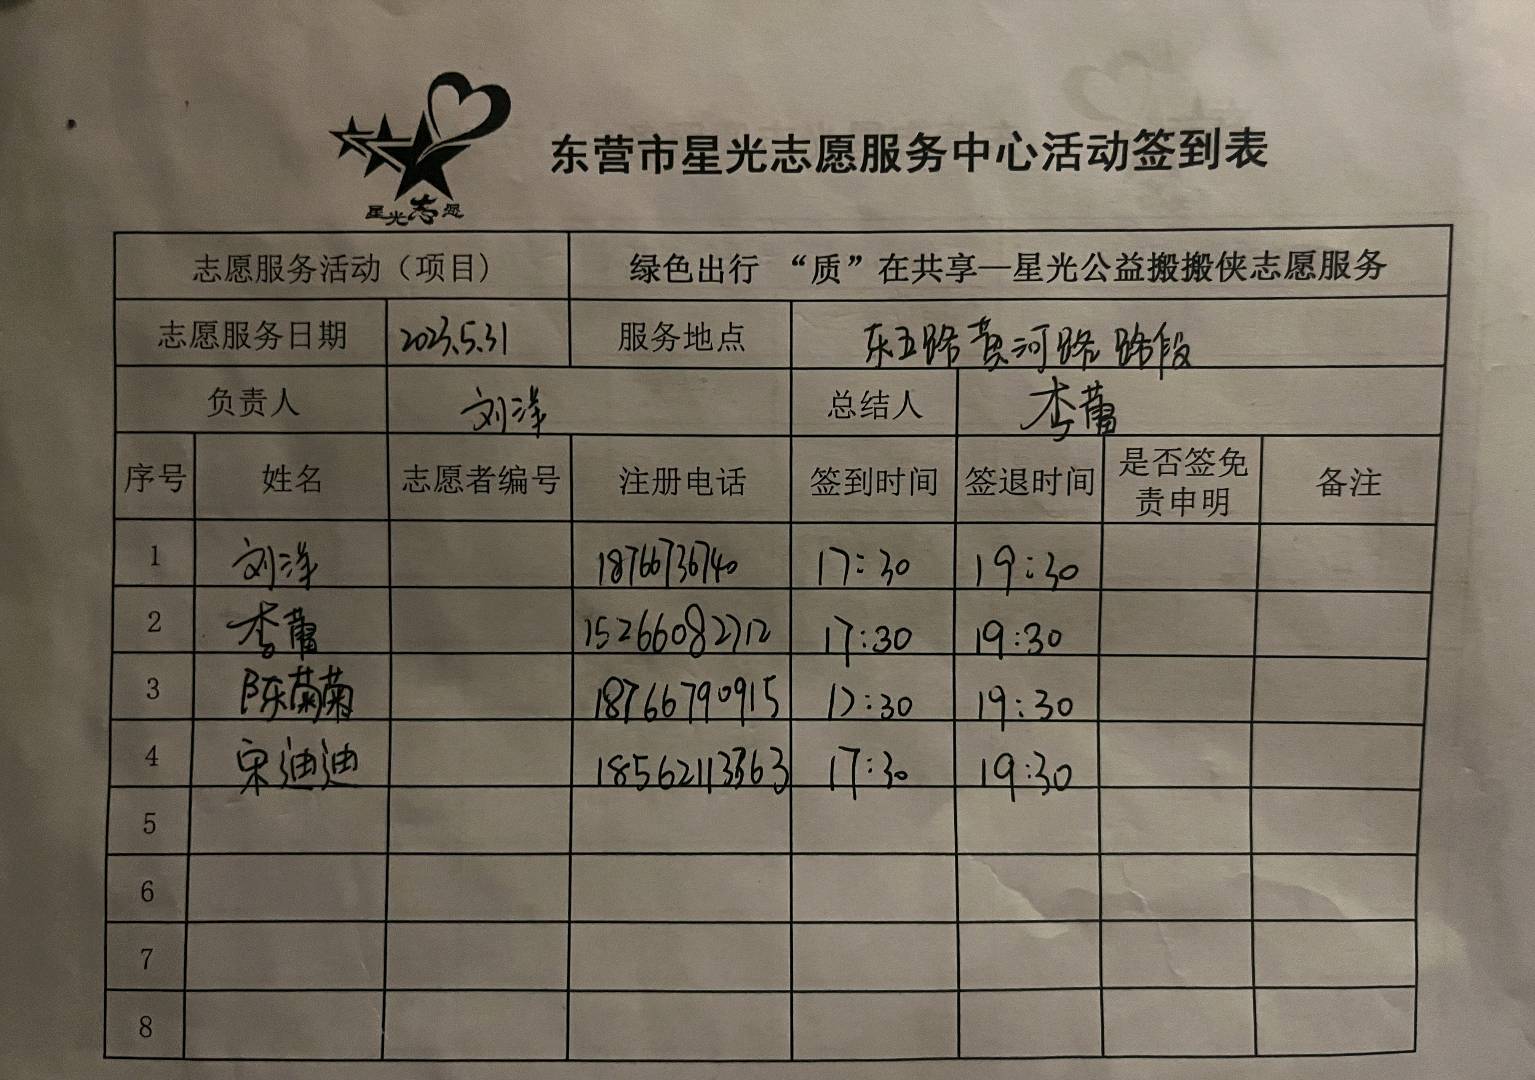 星光志愿
东营市星光志愿服务中心活动签到表
志愿服务活动（项目） 绿色出行 “质”在共享—星光公益搬搬侠志愿服务
志愿服务日期 2023.5.31 服务地点 东五路黄河路 路段
负责人 刘洋 总结人 李莆
序号 姓名 志愿者编号 注册电话 签到时间 签退时间 是否签免责申明 备注
1 刘洋 18766736740 17:30 19:30
2 李莆 15266082712 17:30 19:30
3 陈菊菊 18766790915 17:30 19:30
4 宋迪迪 18562113363 17:30 19:30
5
6
7
8